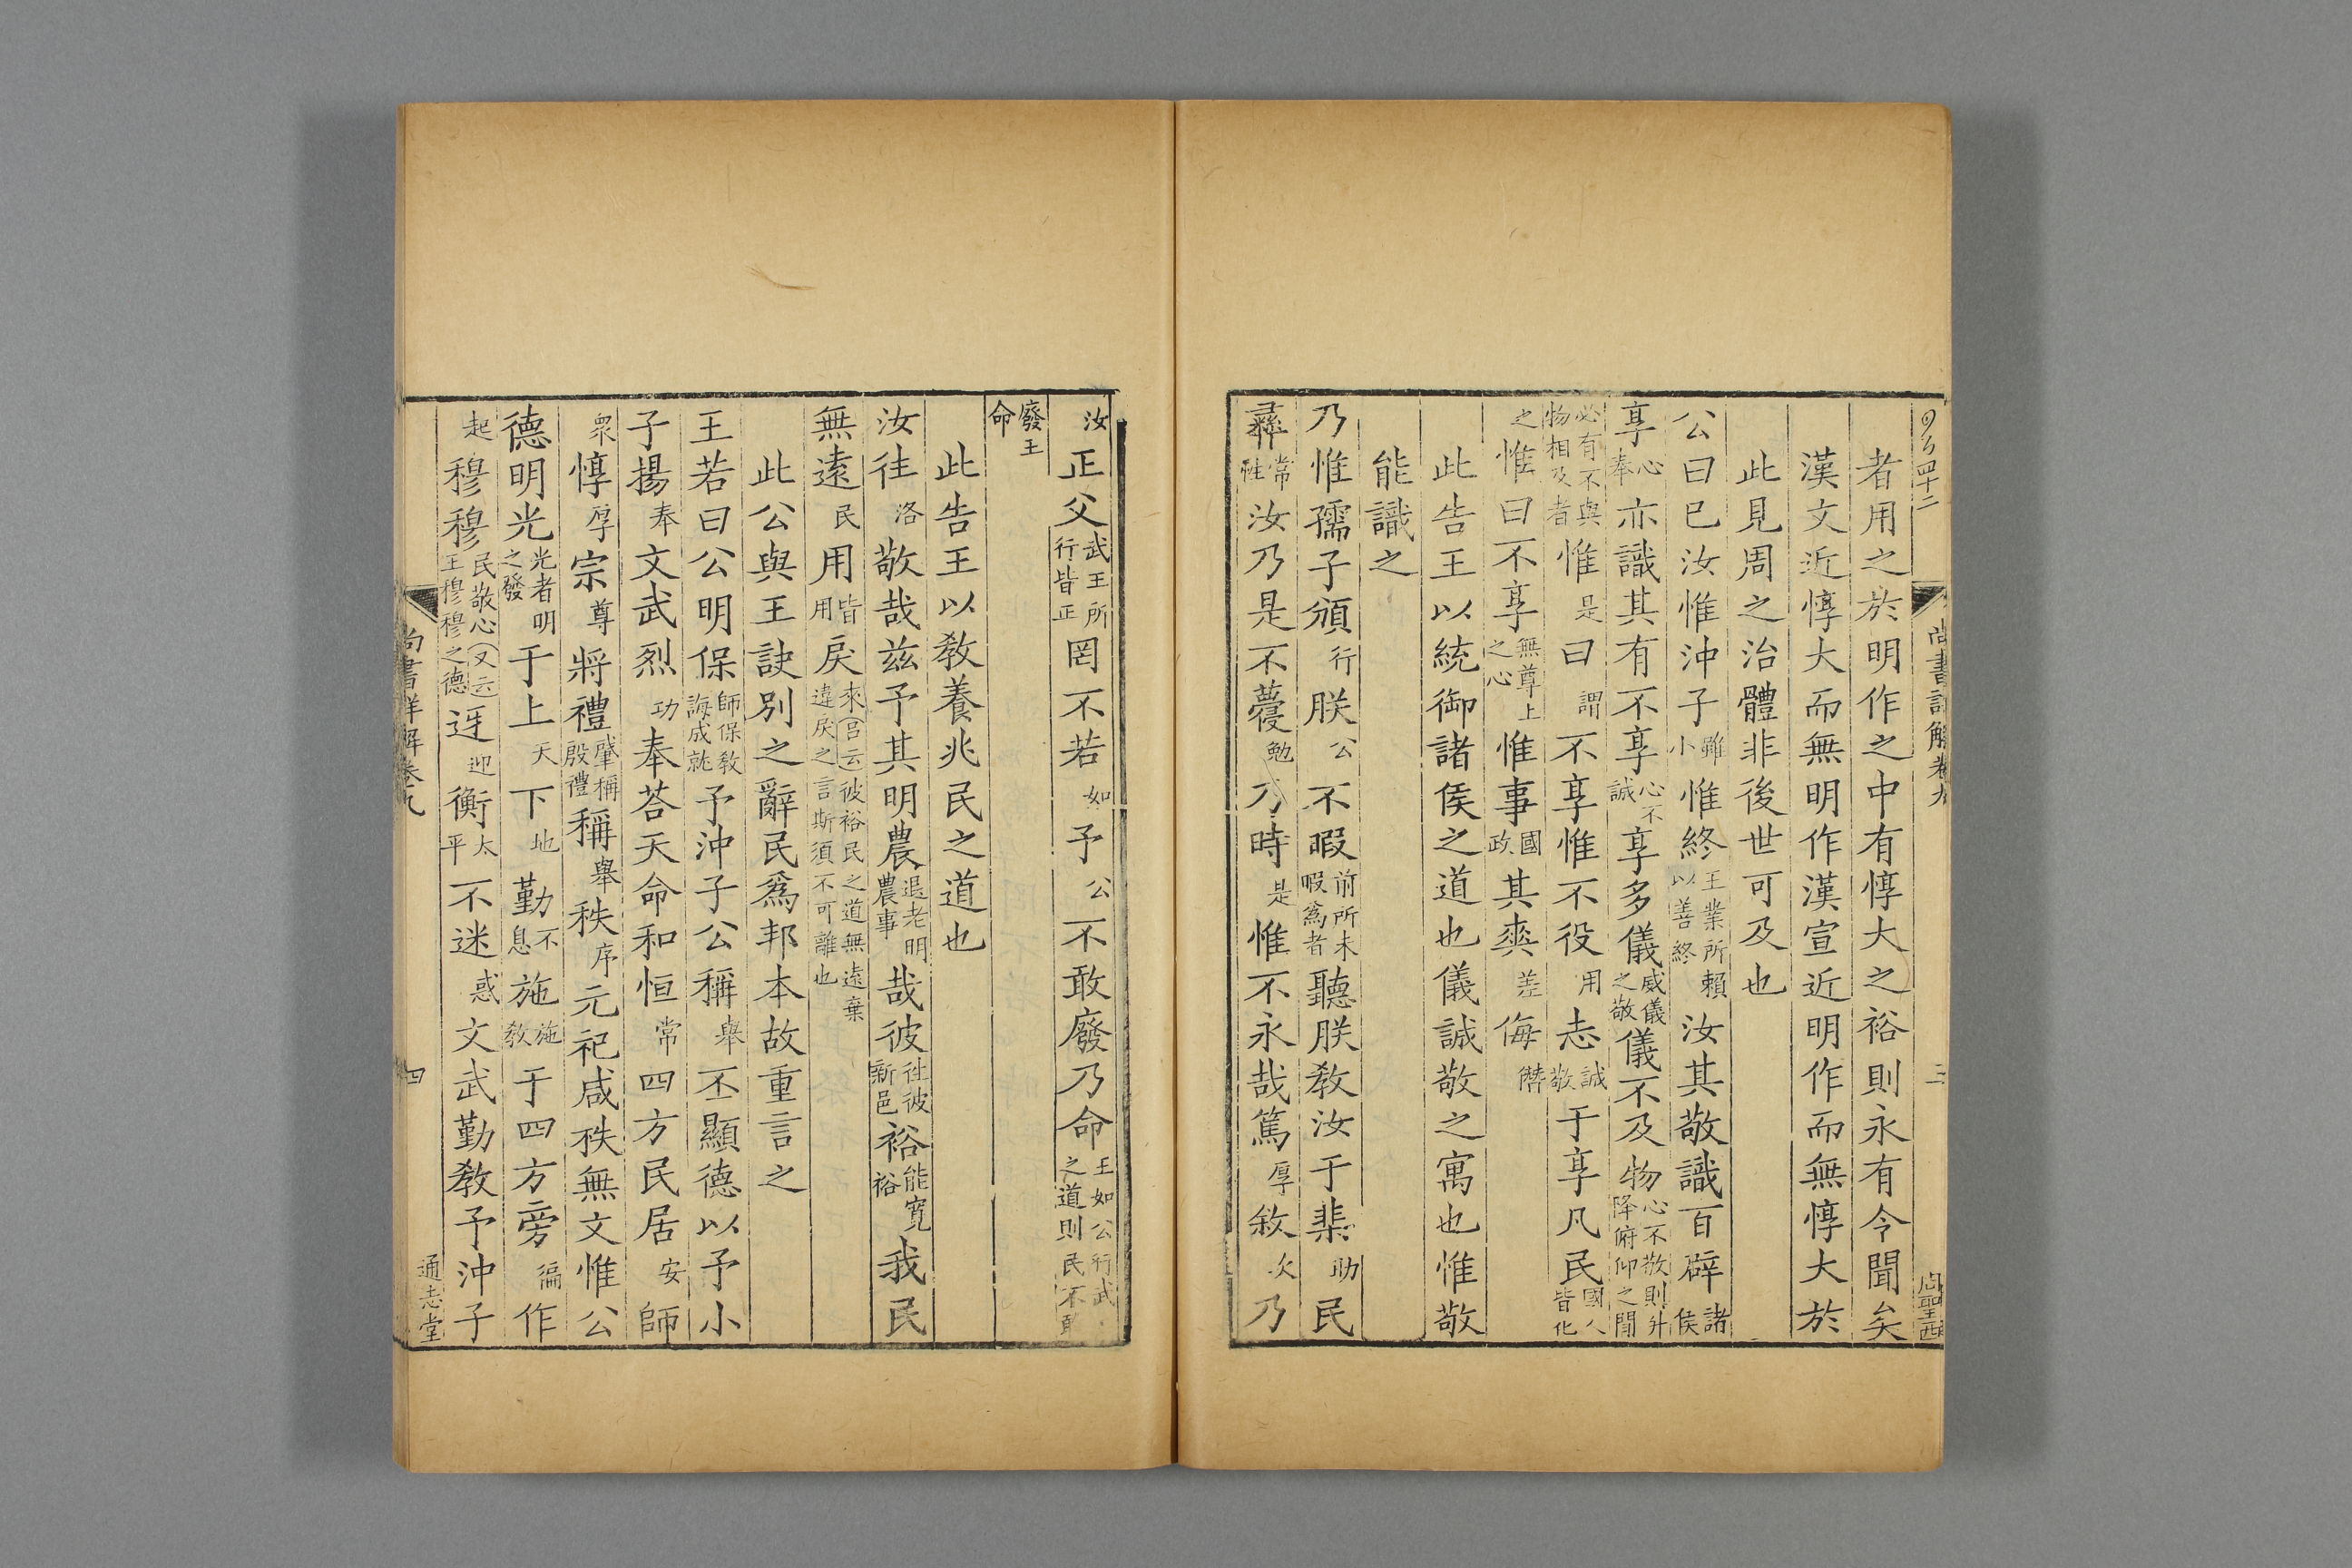 尚書詳解卷九
三
者用之於明作之中有惇大之裕則永有令聞矣
漢文近惇大而無明作漢宣近明作而無惇大於
此見周之治體非後世可及也
公曰已汝惟沖子雖小惟終王業所賴以善終汝其敬識百辟諸侯
享心奉亦識其有不享心不誠享多儀威儀之敬儀不及物心不敬則升降俯仰之間
必有不與物相及者惟是曰謂不享惟不役用志誠敬于享凡民國人皆化
之惟曰不享無尊上之心惟事國政其爽差侮僭
此告王以統御諸侯之道也儀誠敬之寓也惟敬
能識之
乃惟孺子頒行朕公不暇前所未暇爲者聽朕教汝于棐助民
彝常性汝乃是不蘉勉乃時是惟不永哉篤厚敘次乃
汝正父武王所行皆正罔不若如予公不敢廢乃命王如公行武之道則民不敢
廢王命
此告王以敎養兆民之道也
汝往洛敬哉兹予其明農退老明農事哉彼往彼新邑裕能寛裕我民
無遠民用皆用戾來呂云彼裕民之道無遠棄違戾之言斯須不可離也
此公與王訣別之辭民爲邦本故重言之
王若曰公明保師保敎誨成就予沖子公稱舉丕顯德以予小
子揚奉文武烈功奉荅天命和恒常四方民居安師
衆惇厚宗尊將禮肇稱殷禮稱舉秩序元祀咸秩無文惟公
德明光光者明之發于上天下地勤不息施施敎于四方旁徧作
起穆穆民敬心又云王穆穆之德迓迎衡太平不迷惑文武勤敎予沖子
尚書詳解卷九
四
通志堂